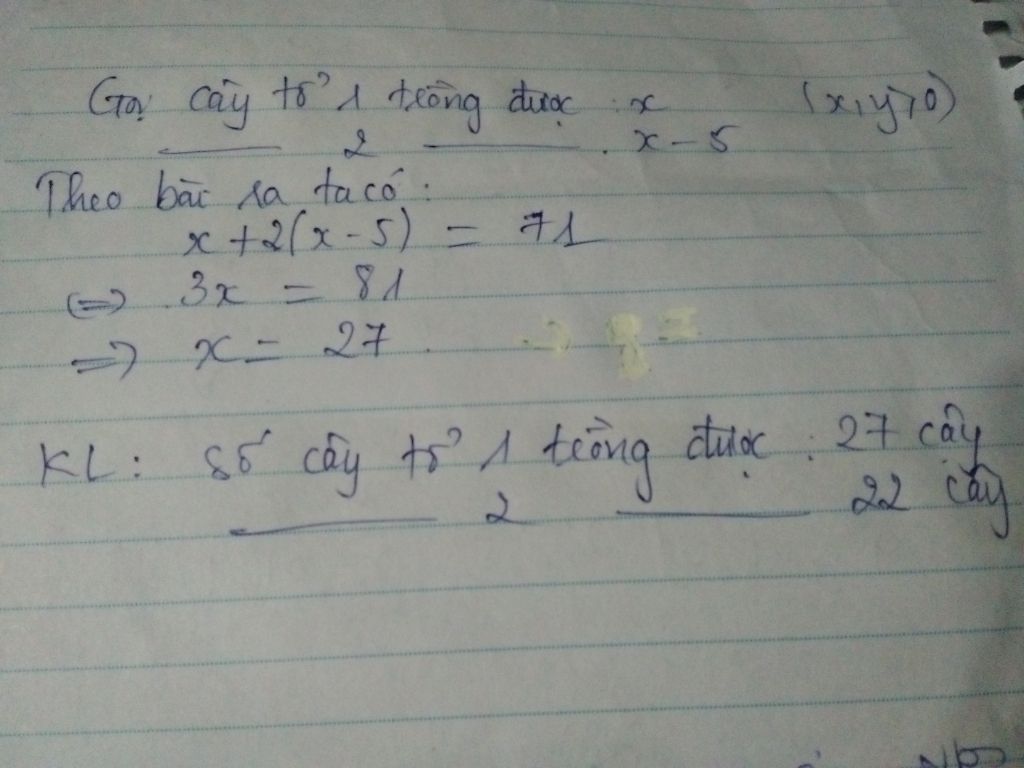 Gọi cây tổ 1 trồng được : x (x,y>0)
2 . x - 5
Theo bài ra ta có :
x + 2(x - 5) = 71
<=> 3x = 81
=> x = 27
KL : số cây tổ 1 trồng được : 27 cây
2 22 cây